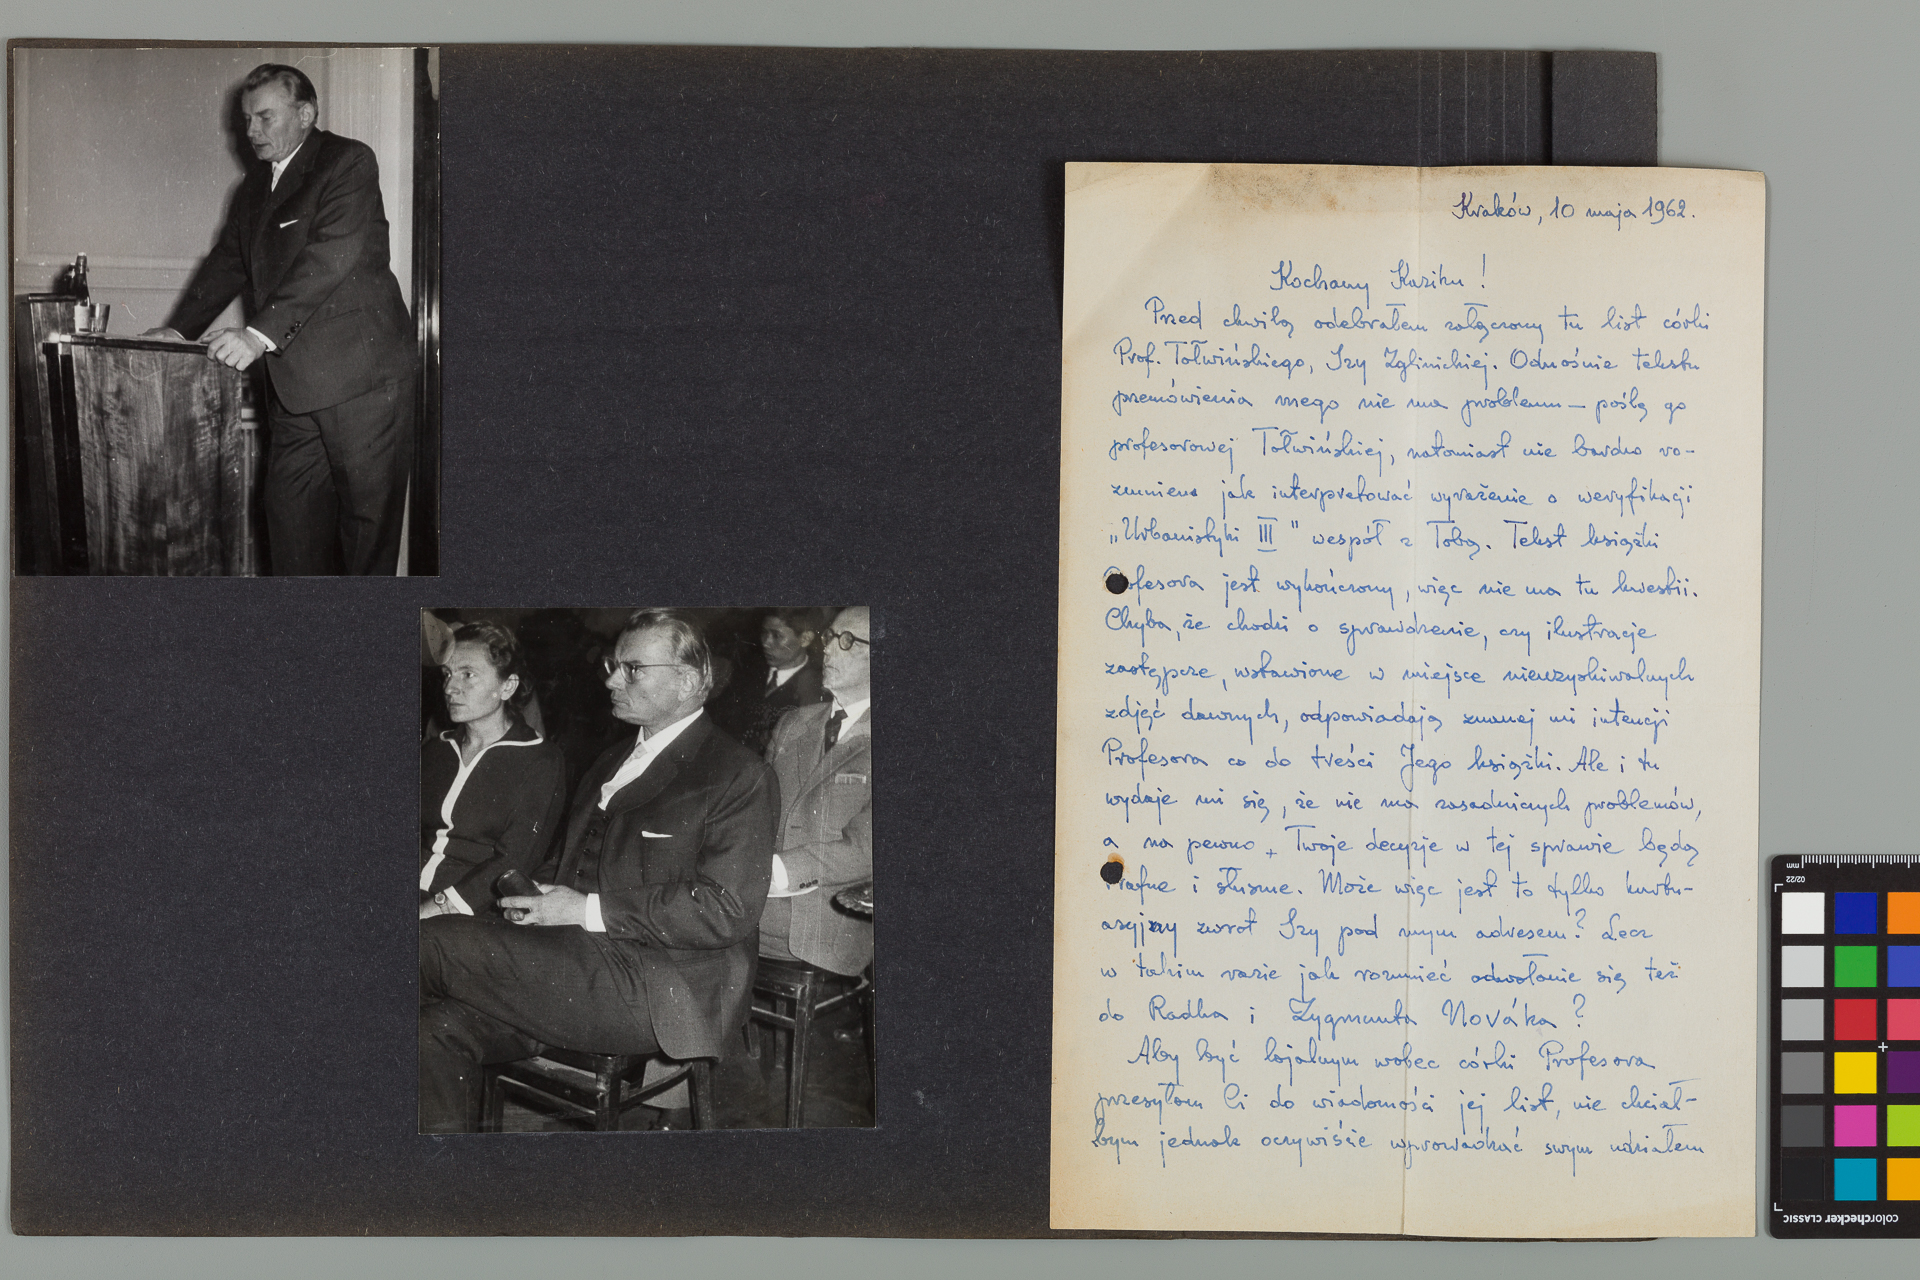 Kraków, 10 maja 1962.
Kochany Kaziku!
Przed chwilą odebrałem załączony tu list córki
Prof. Tołwińskiego, Izy Zglinickiej. Odnośnie tekstu
przemówienia mego nie ma problemu – poślę go
profesorowej Tołwińskiej, natomiast nie bardzo ro-
zumiem jak interpretować wyrażenie o weryfikacji
„Urbanistyki III" wespół z Tobą. Tekst książki
Profesora jest wykończony, więc nie ma tu kwestii.
Chyba, że chodzi o sprawdzenie, czy ilustracje
zastępcze, wstawione w miejsce nieuzyskiwalnych
zdjęć dawnych, odpowiadają znanej mi intencji
Profesora co do treści Jego książki. Ale i tu
wydaje mi się, że nie ma zasadniczych problemów,
a na pewno Twoje decyzje w tej sprawie będą
trafne i słuszne. Może więc jest to tylko kurtu-
azyjny zwrot Izy pod mym adresem? Lecz
w takim razie jak rozumieć odwołanie się też
do Radka i Zygmunta Nováka?
Aby być lojalnym wobec córki Profesora
przesyłam Ci do wiadomości jej list, nie chciał-
bym jednak oczywiście wprowadzać swym udziałem
mm
02/22
colorchecker CLASSIC